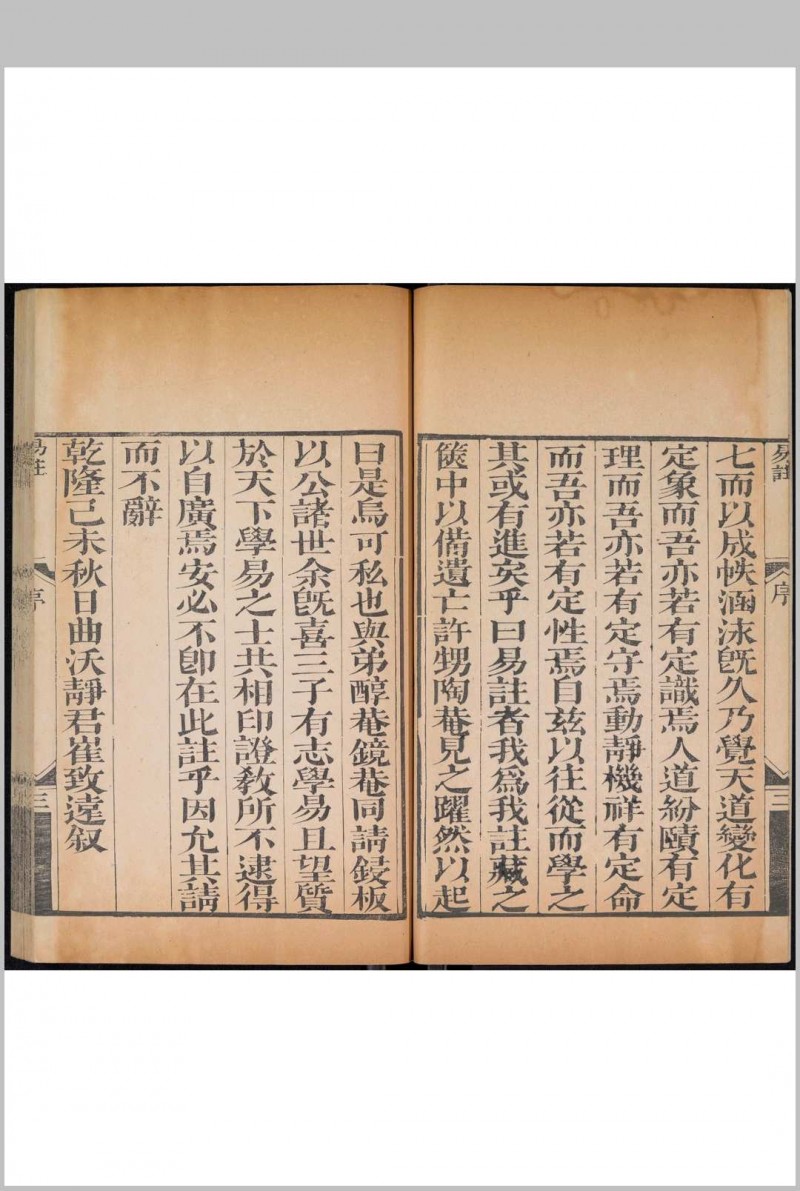 易註
序
三
七而以成帙涵泳旣久乃覺天道變化有
定象而吾亦若有定識焉人道紛賾有定
理而吾亦若有定守焉動靜機祥有定命
而吾亦若有定性焉自兹以往從而學之
其或有進矣乎曰易註者我爲我註藏之
篋中以備遺亡許甥陶菴見之躍然以起
曰是烏可私也與弟醇菴鏡菴同請鋟板
以公諸世余旣喜三子有志學易且望質
於天下學易之士共相印證敎所不逮得
以自廣焉安必不卽在此註乎因允其請
而不辭
乾隆己未秋日曲沃靜君崔致遠叙
易註
序
三